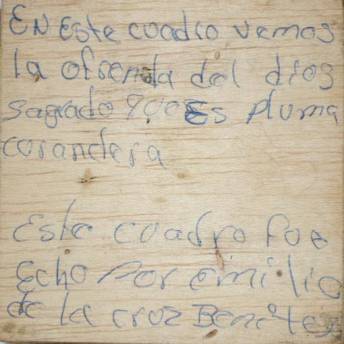 EN Este cuadro vemos
la ofrenda del dios
sagrado que Es pluma
corandera
Este cuadro fue
Echo Por emilio
de la cruz Benites